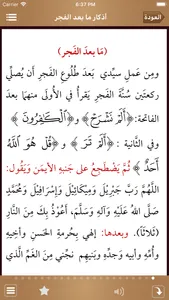 9:37 PM
العودة
أذكار ما بعد الفجر
(مَا بعدَ الفَجر)
ومِن عَمل سيِّدي بَعدَ طُلُوعِ الفَجر أن يُصلِّي
ركعتَين سُنَّة الفَجر يَقرأ في الأُولى منهما بعدَ
الفاتحة: ﴿أَلَمْ نَشْرَحْ﴾ و﴿الْكَافِرُونَ﴾
وفي الثانية ﴿أَلَمْ تَرَ﴾ و﴿قُلْ هُوَ اللَّهُ
أَحَدٌ﴾ ثُمَّ يَضْطَجِعُ على جَنبِهِ الأيمَن ويَقُول:
اللَّهُمَّ رَبَّ جِبْرِيْلَ وَمِيْكَائِيْلَ وَإِسْرَافِيْلَ وَمُحَمَّدٍ
صَلَّى اللهُ عَلَيْهِ وَآلِهِ وَسَلَّمَ، أَعُوْذُ بِكَ مِنَ النَّارِ
(ثلاثاً). وبعدها: إلهي بِحُرمةِ الحَسنِ وأخِيهِ
وأُمِّهِ وأبيهِ وجدِّهِ وبَنِيهِم نجِّني مِنَ الغَمِّ الَّذي